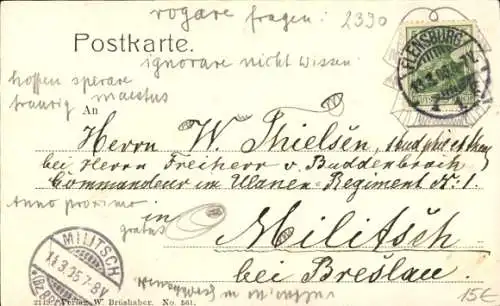 rogare fragen: 2390
Postkarte.
ignorare nicht wissen
hoffen sperare
traurig maestus
FLENSBURG
An
Herrn W. Thielsen, stud. phil. et theol.
bei Herrn Freiherr v. Buddenbrock
Commandeur im Ulanen-Regiment N: 1.
Anno proximo
in
gratus
Militsch
MILITSCH
13.3.05.7-8V
bei Breslau.
Verlag W. Brüshaber. No. 561.
15€